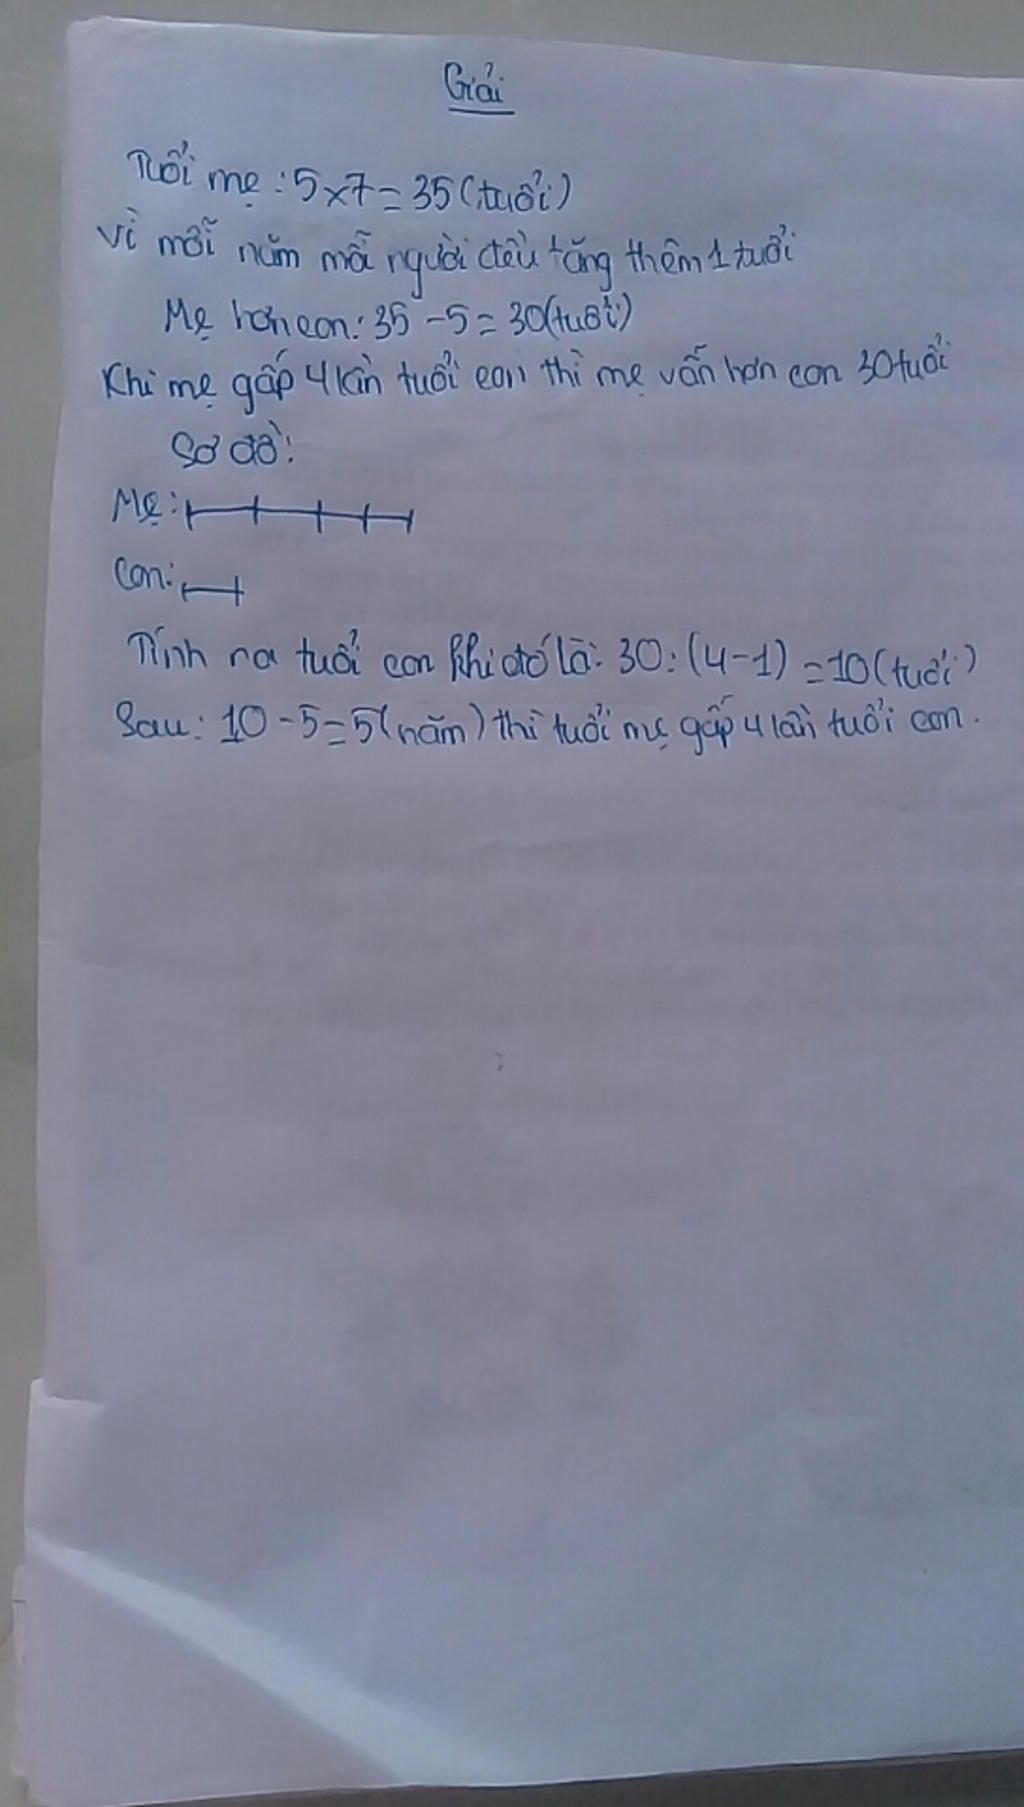 Giải
Tuổi mẹ: 5 x 7 = 35 (tuổi)
Vì mỗi năm mỗi người đều tăng thêm 1 tuổi
Mẹ hơn con: 35 - 5 = 30 (tuổi)
Khi mẹ gấp 4 lần tuổi con thì mẹ vẫn hơn con 30 tuổi
Sơ đồ:
Mẹ:
Con:
Tính ra tuổi con khi đó là: 30 : (4 - 1) = 10 (tuổi)
Sau: 10 - 5 = 5 (năm) thì tuổi mẹ gấp 4 lần tuổi con.